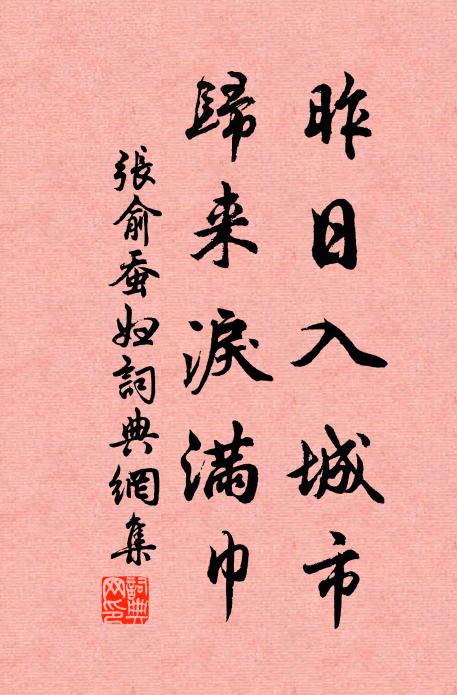 昨日入城市
歸来淚滿巾
張俞蚕婦詞典網集
詞典網印